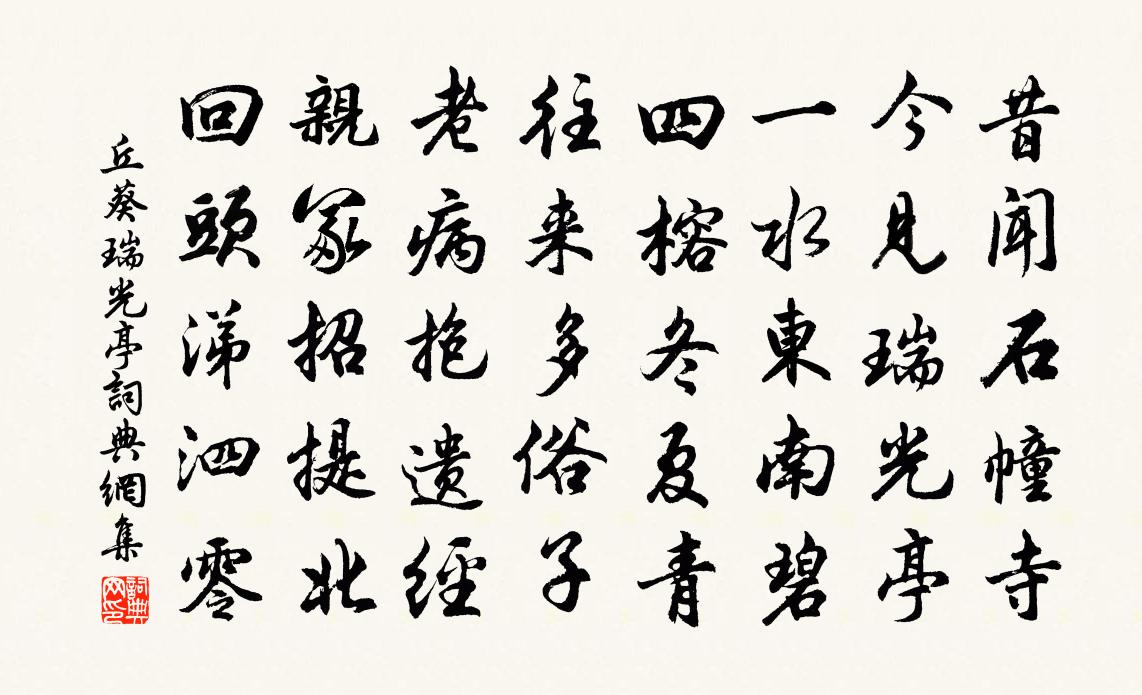 昔聞石幢寺
今見瑞光亭
一水東南碧
四榕冬夏青
往来多俗子
老病抱遗經
親冢招提北
回頭涕泗零
丘葵瑞光亭詞典網集
詞典网印